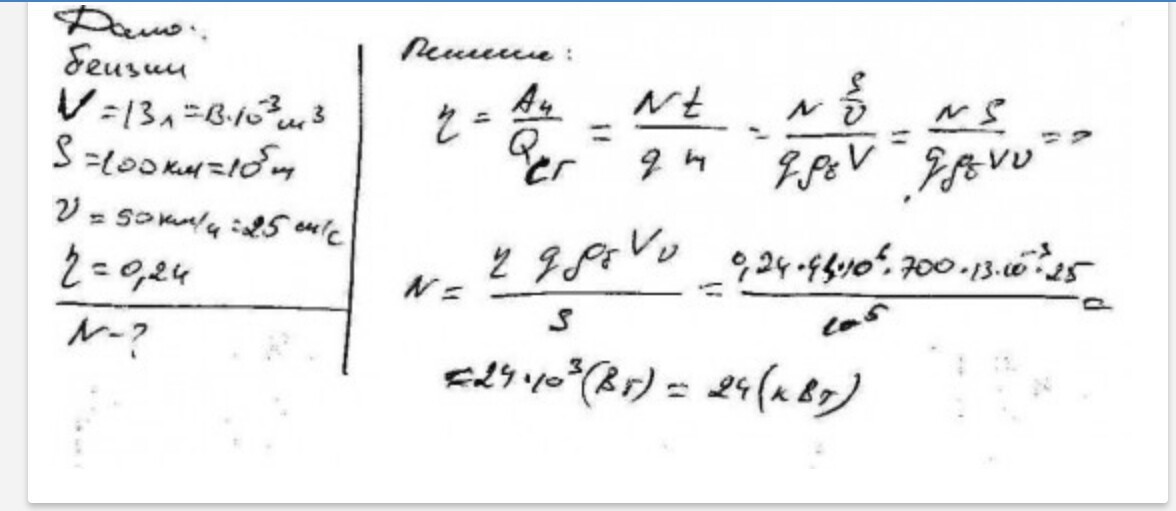 Дано:
бензин
V = 13 л = 13·10⁻³ м³
S = 100 км = 10⁵ м
υ = 90 км/ч = 25 м/с
η = 0,24
N - ?
Решение:
η = Aч/Qсг = Nt/qm = N(S/υ)/(qρбV) = NS/(qρбVυ) =>
N = ηqρбVυ/S = 0,24·45·10⁶·700·13·10⁻³·25/10⁵ =
= 24·10³ (Вт) = 24 (кВт)